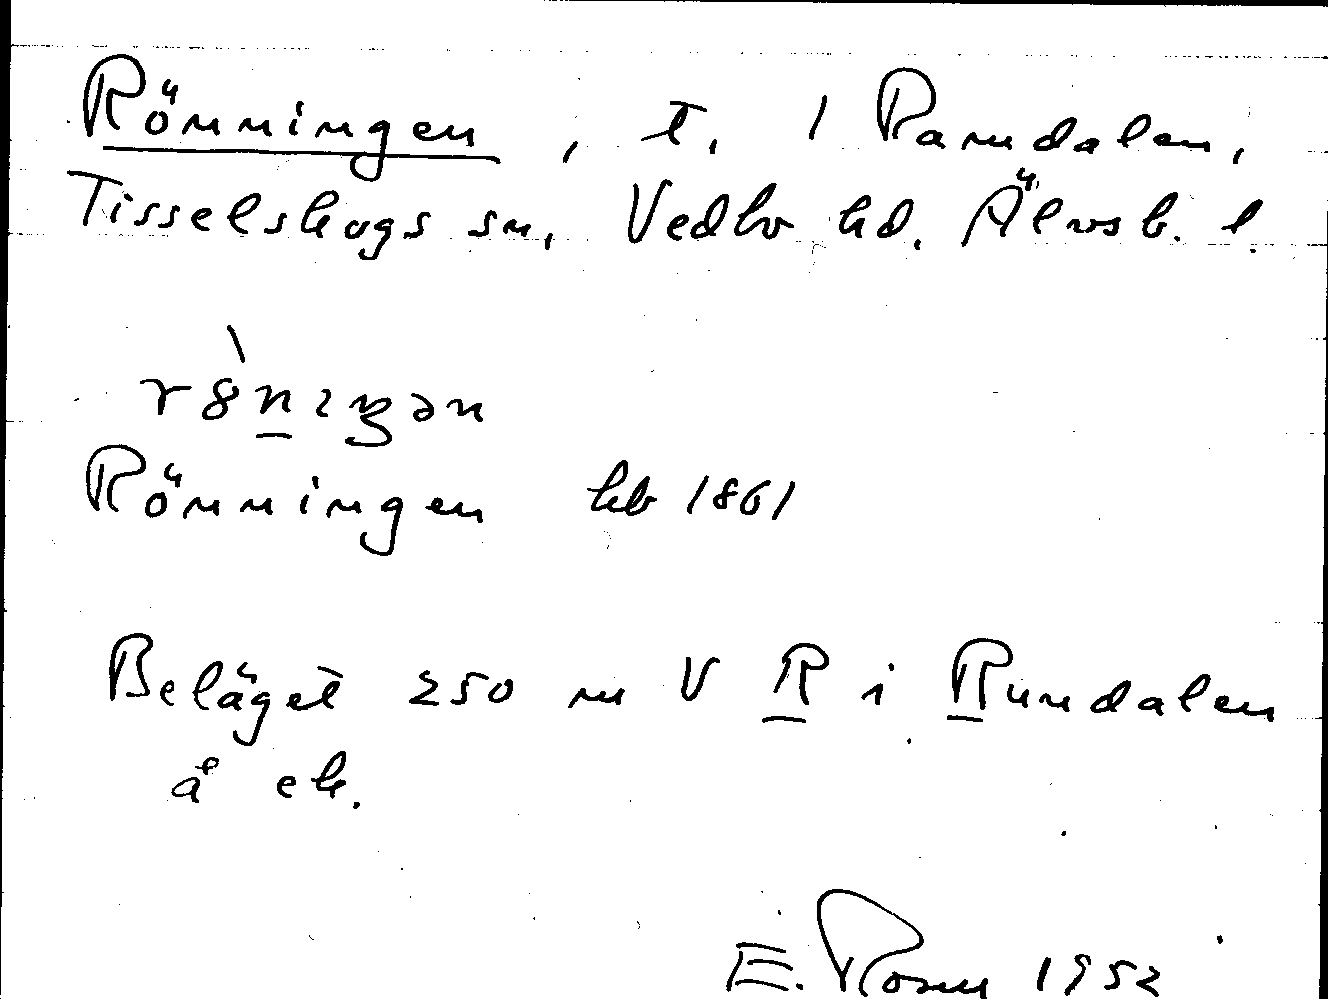 Rönningen, t. / Ramdalen,
Tisselskogs sn, Vedbo hd. Älvsb. l.
Rönningen hb 1861
Beläget 250 m V R i Rundalen
å ek.
E. Rosen 1952